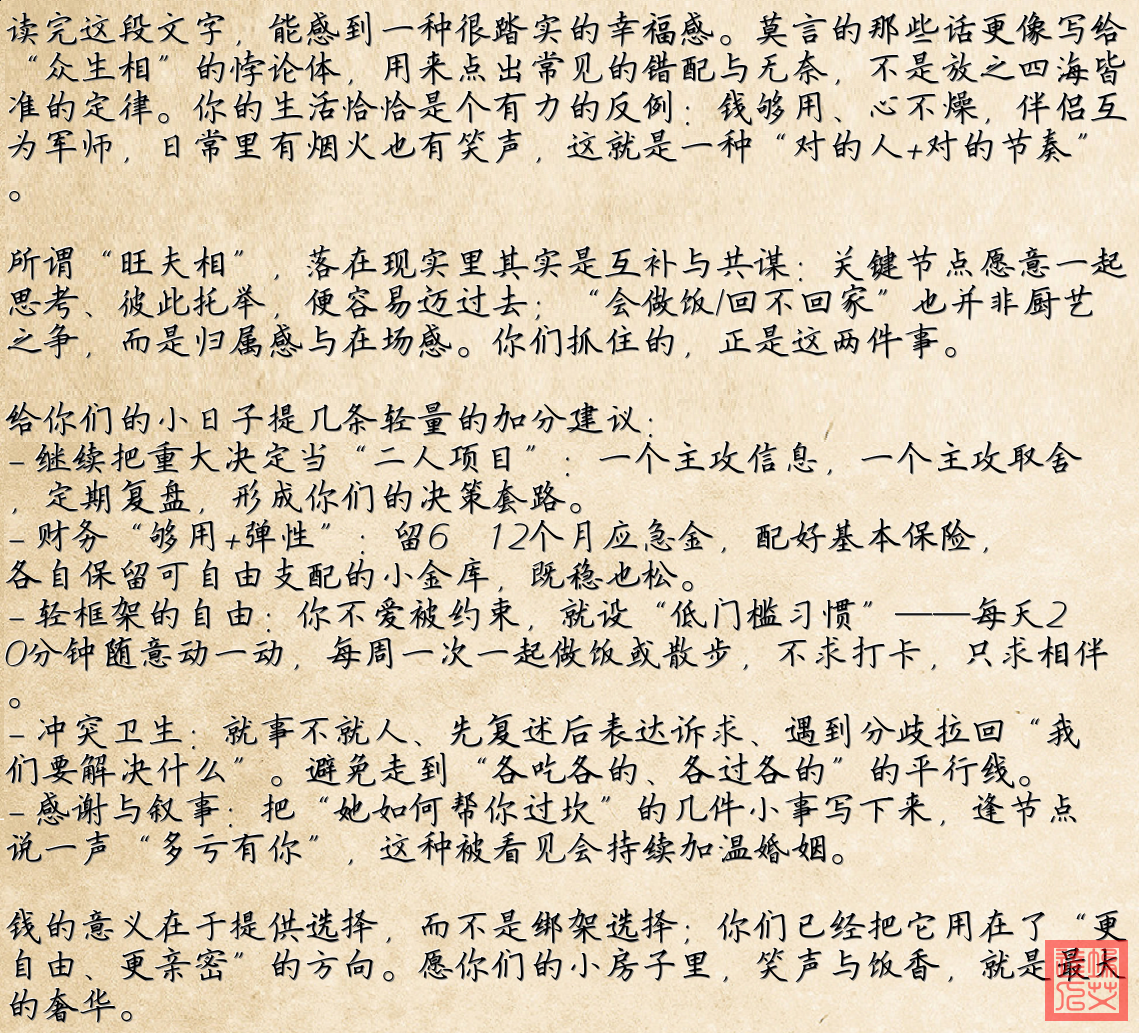 读完这段文字，能感到一种很踏实的幸福感。莫言的那些话更像写给
“众生相”的悖论体，用来点出常见的错配与无奈，不是放之四海皆
准的定律。你的生活恰恰是个有力的反例：钱够用、心不燥，伴侣互
为军师，日常里有烟火也有笑声，这就是一种“对的人+对的节奏”
。
所谓“旺夫相”，落在现实里其实是互补与共谋：关键节点愿意一起
思考、彼此托举，便容易迈过去；“会做饭/回不回家”也并非厨艺
之争，而是归属感与在场感。你们抓住的，正是这两件事。
给你们的小日子提几条轻量的加分建议：
- 继续把重大决定当“二人项目”：一个主攻信息，一个主攻取舍
，定期复盘，形成你们的决策套路。
- 财务“够用+弹性”：留6 12个月应急金，配好基本保险，
各自保留可自由支配的小金库，既稳也松。
- 轻框架的自由：你不爱被约束，就设“低门槛习惯”——每天2
0分钟随意动一动，每周一次一起做饭或散步，不求打卡，只求相伴
。
- 冲突卫生：就事不就人、先复述后表达诉求、遇到分歧拉回“我
们要解决什么”。避免走到“各吃各的、各过各的”的平行线。
- 感谢与叙事：把“她如何帮你过坎”的几件小事写下来，逢节点
说一声“多亏有你”，这种被看见会持续加温婚姻。
钱的意义在于提供选择，而不是绑架选择；你们已经把它用在了“更
自由、更亲密”的方向。愿你们的小房子里，笑声与饭香，就是最大
的奢华。